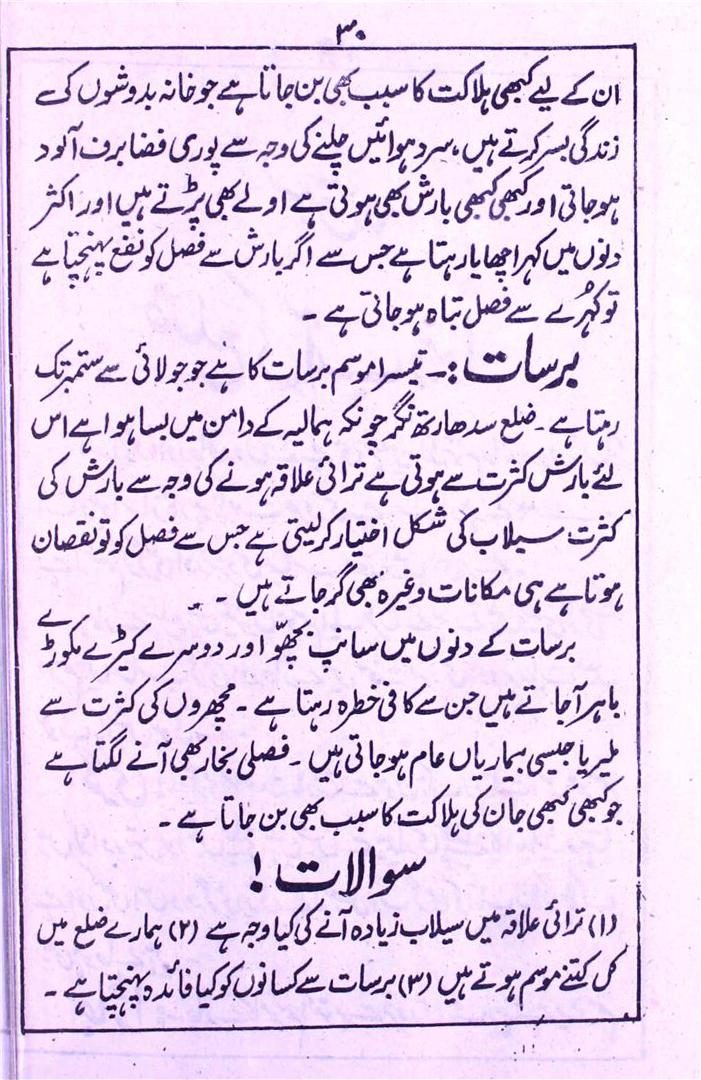 ۳۰
ان کے لیے کبھی ہلاکت کا سبب بھی بن جاتا ہے جو خانہ بدوشوں کی
زندگی بسر کرتے ہیں، سرد ہوائیں چلنے کی وجہ سے پوری فضا برف آلود
ہو جاتی اور کبھی کبھی بارش بھی ہوتی ہے اولے بھی پڑتے ہیں اور اکثر
دنوں میں کہرا چھایا رہتا ہے جس سے اگر بارش سے فصل کو نفع پہنچتا ہے
تو کہُرے سے فصل تباہ ہو جاتی ہے ۔
برسات :۔ تیسرا موسم برسات کا ہے جو جولائی سے ستمبر تک
رہتا ہے ۔ ضلع سدھارتھ نگر چونکہ ہمالیہ کے دامن میں بسا ہوا ہے اس
لئے بارش کثرت سے ہوتی ہے ترائی علاقہ ہونے کی وجہ سے بارش کی
کثرت سیلاب کی شکل اختیار کر لیتی ہے جس سے فصل کو تو نقصان
ہوتا ہے ہی مکانات وغیرہ بھی گر جاتے ہیں ۔
برسات کے دنوں میں سانپ بچھّو اور دوسرے کیڑے مکوڑے
باہر آ جاتے ہیں جن سے کافی خطرہ رہتا ہے ۔ مچھروں کی کثرت سے
ملیریا جیسی بیماریاں عام ہو جاتی ہیں ۔ فصلی بخار بھی آنے لگتا ہے
جو کبھی کبھی جان کی ہلاکت کا سبب بھی بن جاتا ہے ۔
سوالات !
(۱) ترائی علاقہ میں سیلاب زیادہ آنے کی کیا وجہ ہے (۲) ہمارے ضلع میں
کل کتنے موسم ہوتے ہیں (۳) برسات سے کسانوں کو کیا فائدہ پہنچتا ہے ۔